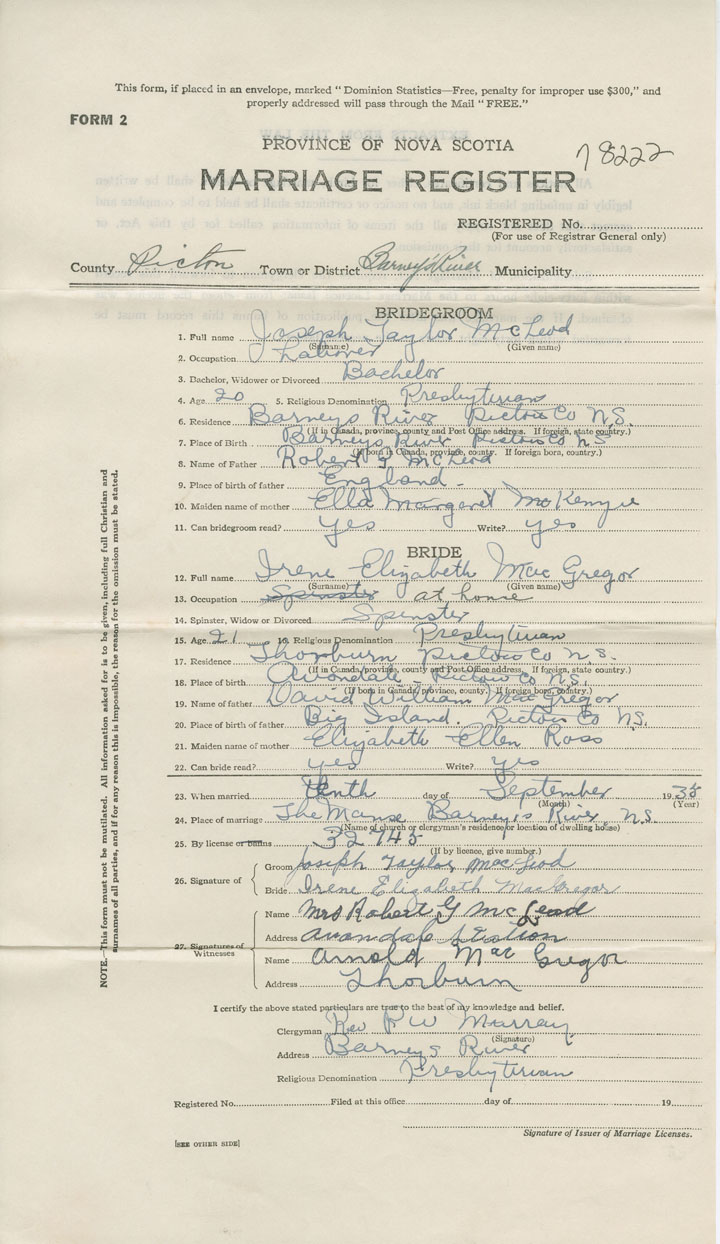 This form, if placed in an envelope, marked "Dominion Statistics—Free, penalty for improper use $300," and
properly addressed will pass through the Mail "FREE."
FORM 2
PROVINCE OF NOVA SCOTIA
78222
MARRIAGE REGISTER
REGISTERED No.
(For use of Registrar General only)
County Pictou Town or District Barney's River Municipality
BRIDEGROOM
1. Full name Joseph Taylor McLeod
(Surname) (Given name)
2. Occupation Laborer
3. Bachelor, Widower or Divorced Bachelor
4. Age 20 5. Religious Denomination Presbyterian
6. Residence Barneys River Pictou Co N.S.
(If in Canada, province, county and Post Office address. If foreign, state country.)
7. Place of Birth Barneys River Pictou Co N.S.
(If born in Canada, province, county. If foreign born, country.)
8. Name of Father Robert G McLeod
9. Place of birth of father England.
10. Maiden name of mother Ella Margaret McKenzie
11. Can bridegroom read? yes Write? yes
BRIDE
12. Full name Irene Elizabeth Mac Gregor
(Surname) (Given name)
13. Occupation Spinster at home
14. Spinster, Widow or Divorced Spinster
15. Age 21 16. Religious Denomination Presbyterian
17. Residence Thorburn Pictou Co N.S.
(If in Canada, province, county and Post Office address. If foreign, state country.)
18. Place of birth Avondale Pictou Co N.S.
(If born in Canada, province, county. If foreign born, country.)
19. Name of father David William MacGregor
20. Place of birth of father Big Island. Pictou Co N.S.
21. Maiden name of mother Elizabeth Ellen Ross
22. Can bride read? yes Write? yes
23. When married tenth day of September 1935
(Month) (Year)
24. Place of marriage The Manse Barney's River, N.S.
(Name of church or clergyman's residence or location of dwelling house)
25. By license or banns 32745
(If by licence, give number.)
26. Signature of
Groom Joseph Taylor MacLeod
Bride Irene Elizabeth MacGregor
27. Signatures of Witnesses
Name Mrs Robert G McLeod
Address Avondale Station
Name Arnold Mac Gregor
Address Thorburn
I certify the above stated particulars are true to the best of my knowledge and belief.
Clergyman Rev P W Murray
(Signature)
Address Barneys River
Religious Denomination Presbyterian
Registered No. Filed at this office day of 19
Signature of Issuer of Marriage Licenses.
[SEE OTHER SIDE]
NOTE.—This form must not be mutilated. All information asked for is to be given, including full Christian and
surnames of all parties, and if for any reason this is impossible, the reason for the omission must be stated.